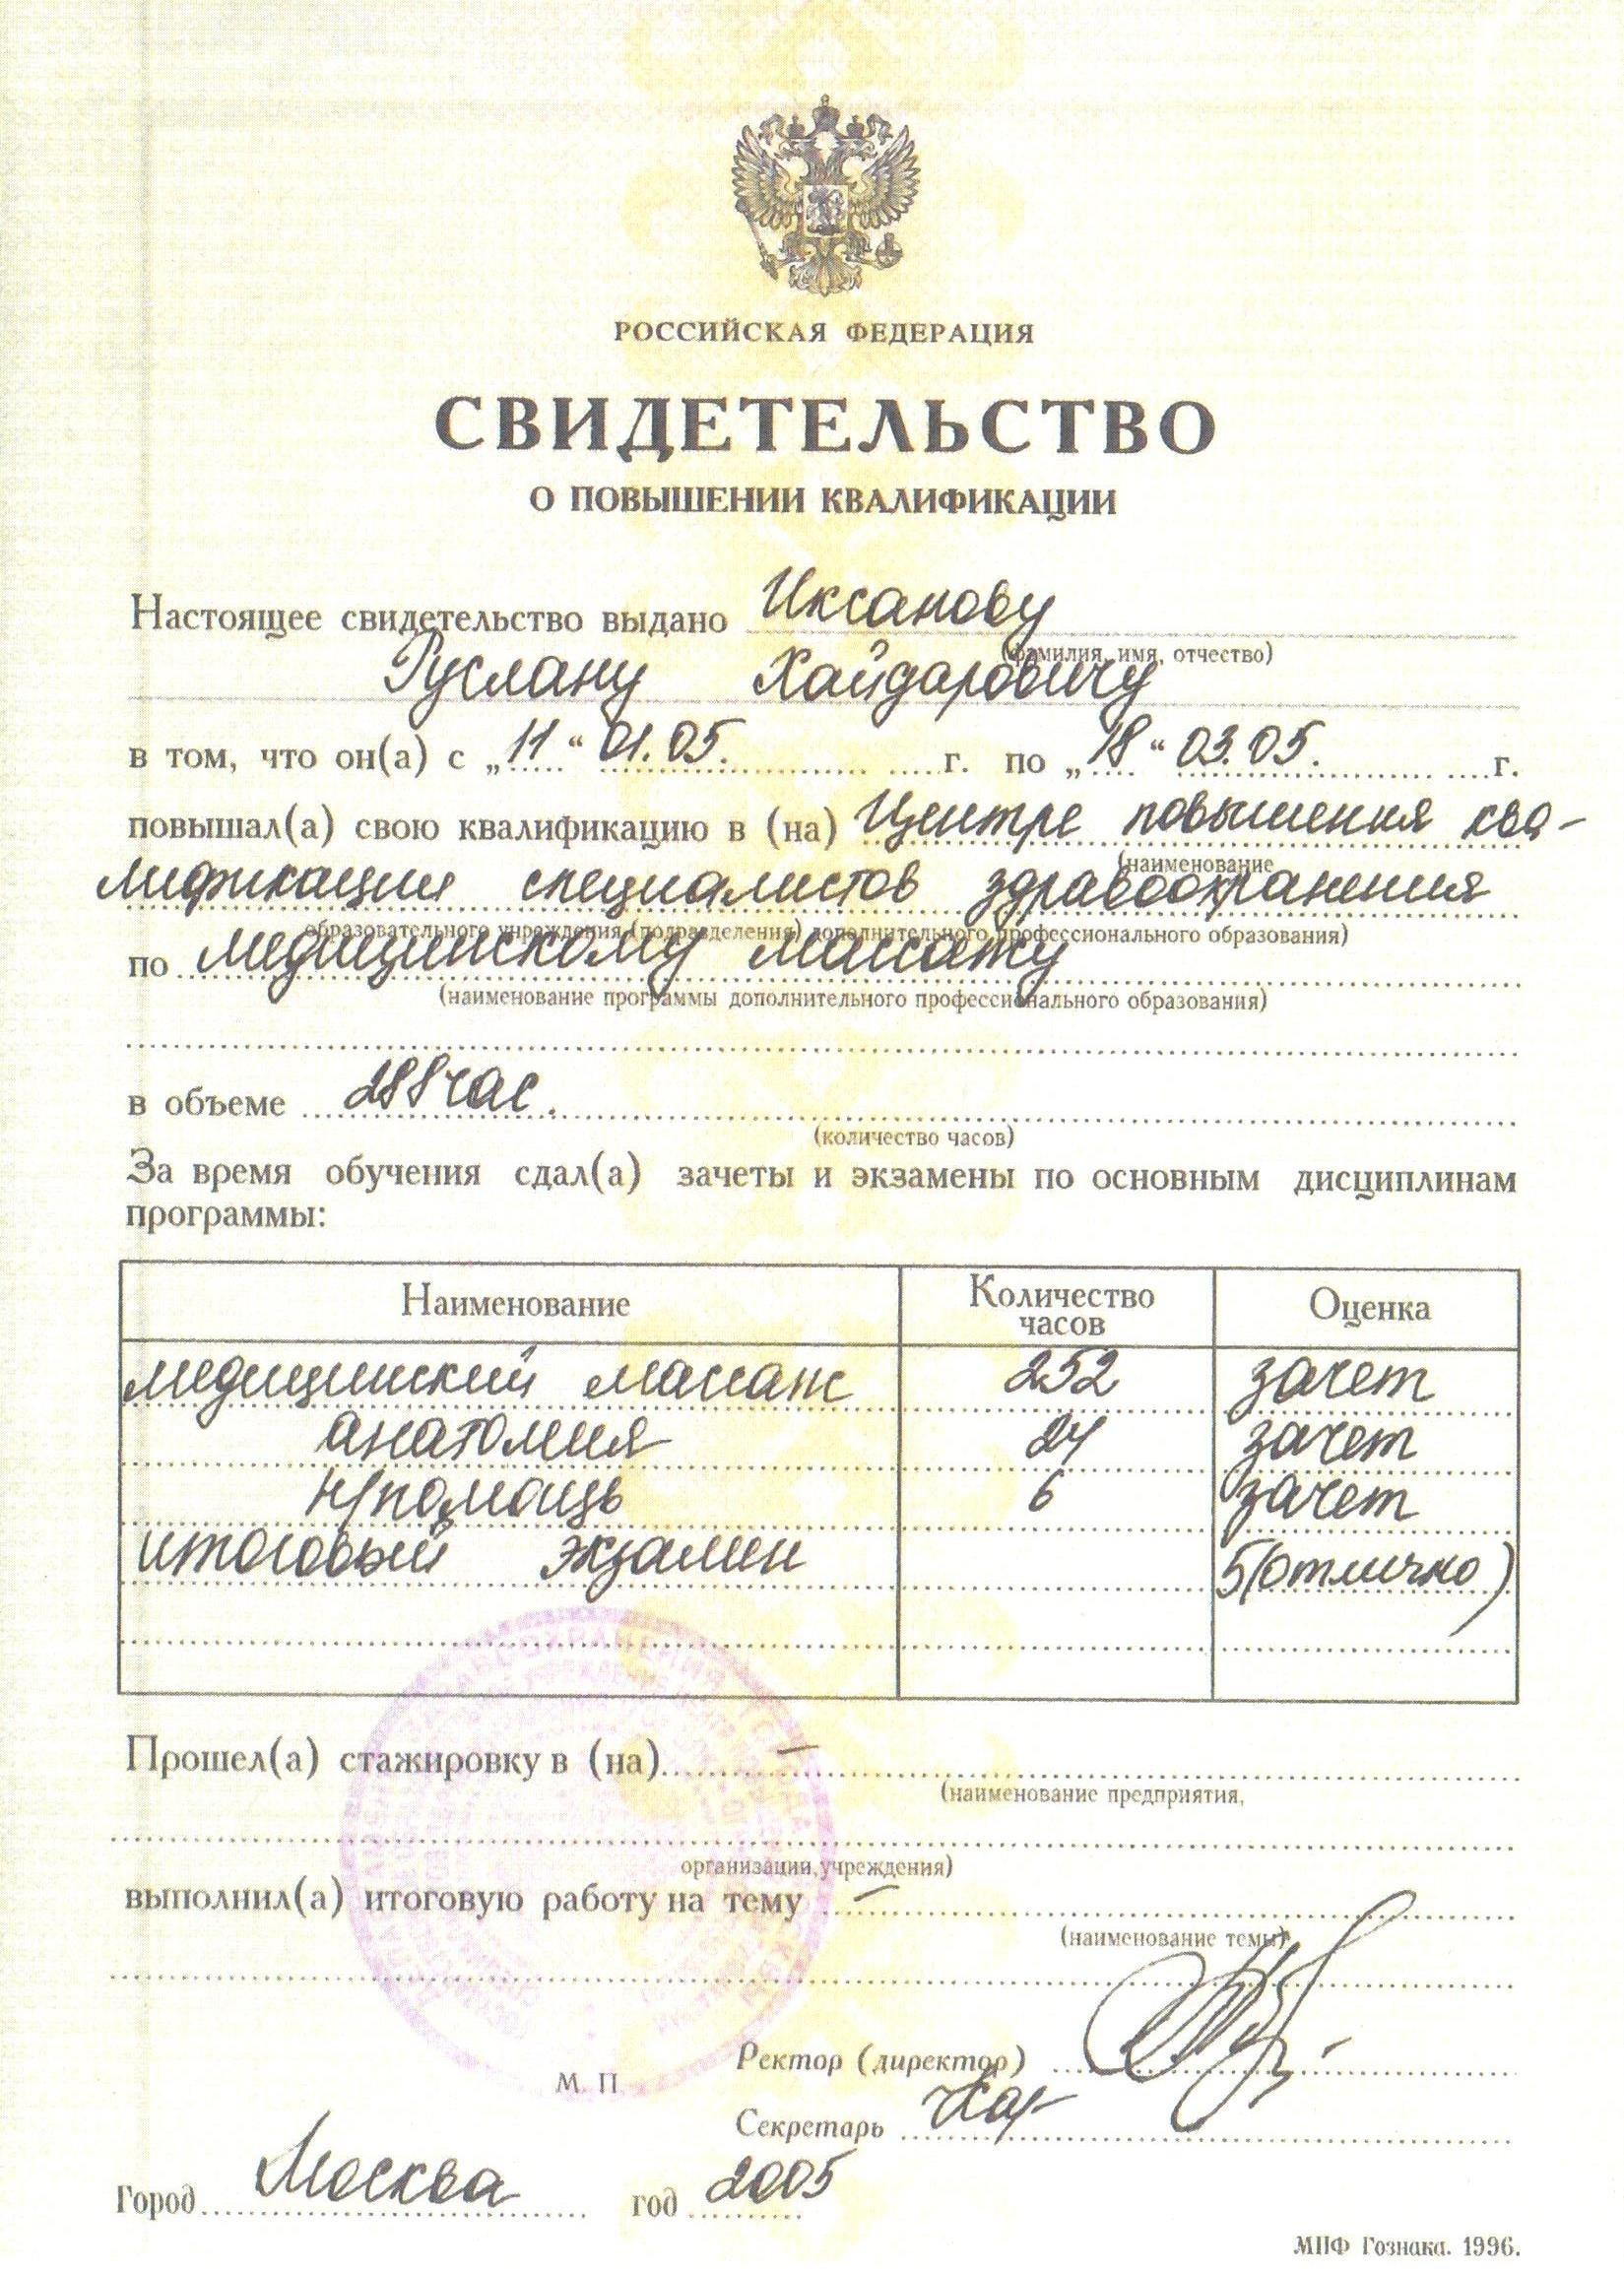 РОССИЙСКАЯ ФЕДЕРАЦИЯ
СВИДЕТЕЛЬСТВО
О ПОВЫШЕНИИ КВАЛИФИКАЦИИ
Настоящее свидетельство выдано Иксанову
(фамилия, имя, отчество)
Руслану Хайдаровичу
в том, что он(а) с „11“ 01.05. г. по „18“ 03.05. г.
повышал(а) свою квалификацию в (на) Центре повышения ква-
(наименование
лификации специалистов здравоохранения
образовательного учреждения (подразделения) дополнительного профессионального образования)
по медицинскому массажу
(наименование программы дополнительного профессионального образования)
в объеме 288 час.
(количество часов)
За время обучения сдал(а) зачеты и экзамены по основным дисциплинам
программы:
Наименование Количество часов Оценка
медицинский массаж 252 зачет
анатомия 24 зачет
н/помощь 6 зачет
итоговый экзамен 5 (отлично)
Прошел(а) стажировку в (на) –
(наименование предприятия,
организации, учреждения)
выполнил(а) итоговую работу на тему –
(наименование темы)
Ректор (директор)
М. П.
Секретарь
Город Москва год 2005
МПФ Гознака. 1996.